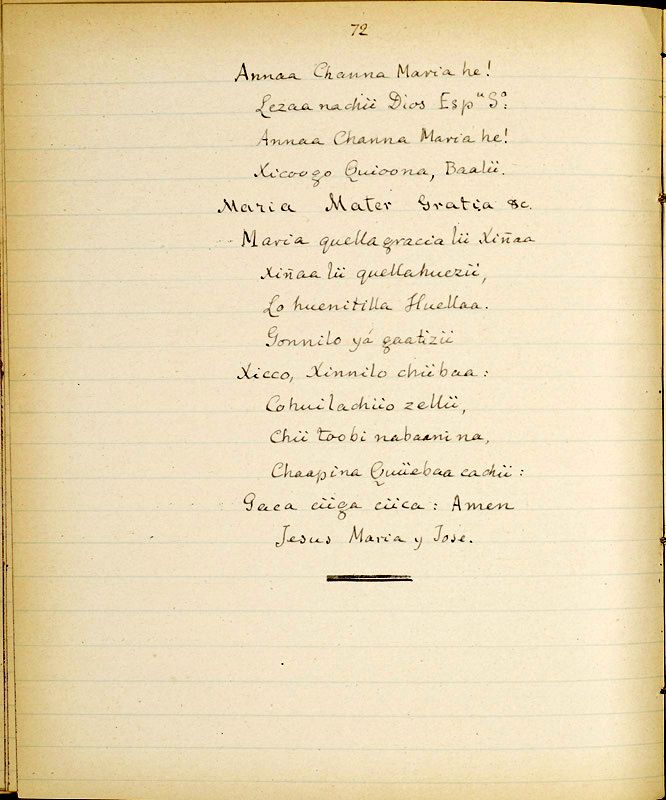 72
Annaa Channa Maria he!
Lezaa nachii Dios Espᵘ Sº:
Annaa Channa Maria he!
Xicoogo Quioona, Baalii.
Maria Mater Gratia &c.
Maria quella gracia lii Xiñaa
Xiñaa lii quellahuezii,
Lo huenitilla Huellaa.
Gonnilo yá gaatizii
Xicco, Xinnilo chiibaa:
Cohuilachiio zellii,
Chii toobi nabaani na,
Chaapina Quiiebaa cachii:
Gaca ciiga ciica: Amen
Jesus Maria y Jose.